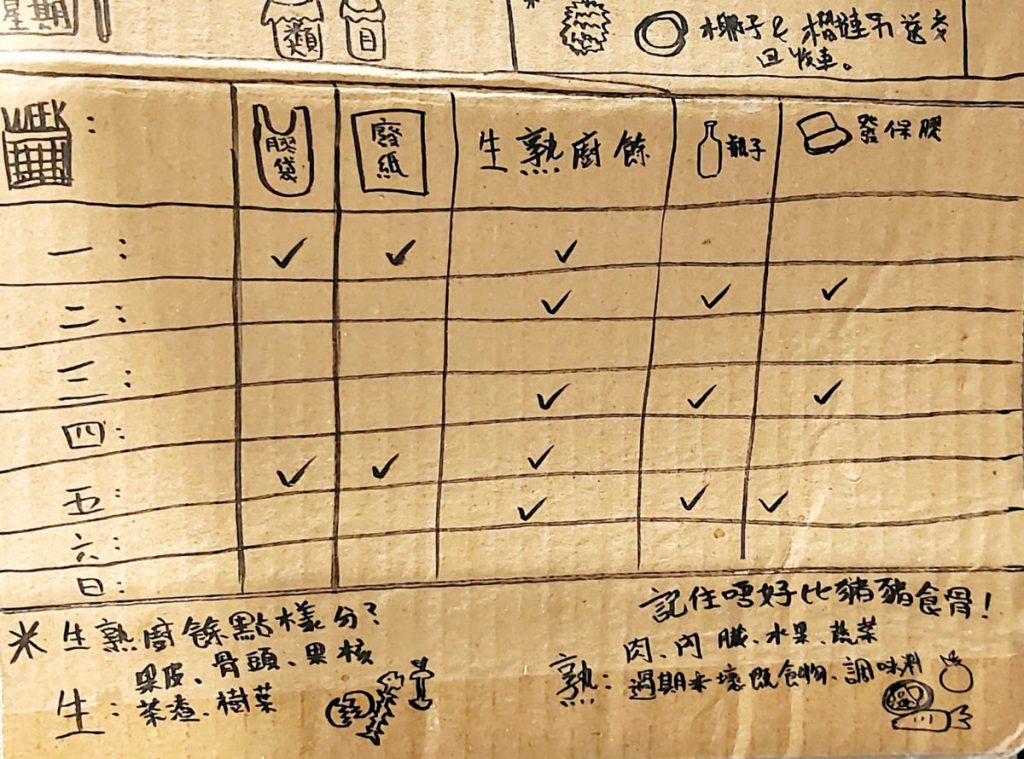 星期
類
目
椰子&榴槤不送交
回收車。
WEEK:
膠袋
廢紙
生熟廚餘
瓶子
發保膠
一:
二:
三:
四:
五:
六:
日:
生熟廚餘點樣分?
生:
果皮、骨頭、果核
茶渣、樹葉
記住唔好比豬豬食骨!
熟:
肉、內臟、水果、蔬菜
過期未壞既食物、調味料